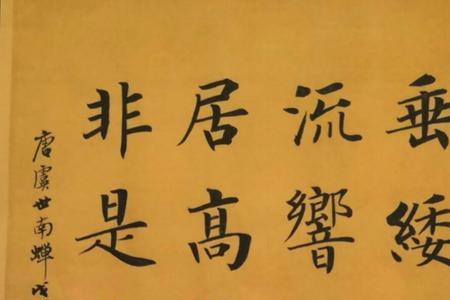 垂緌
流響
居高
非是
唐虞世南蟬